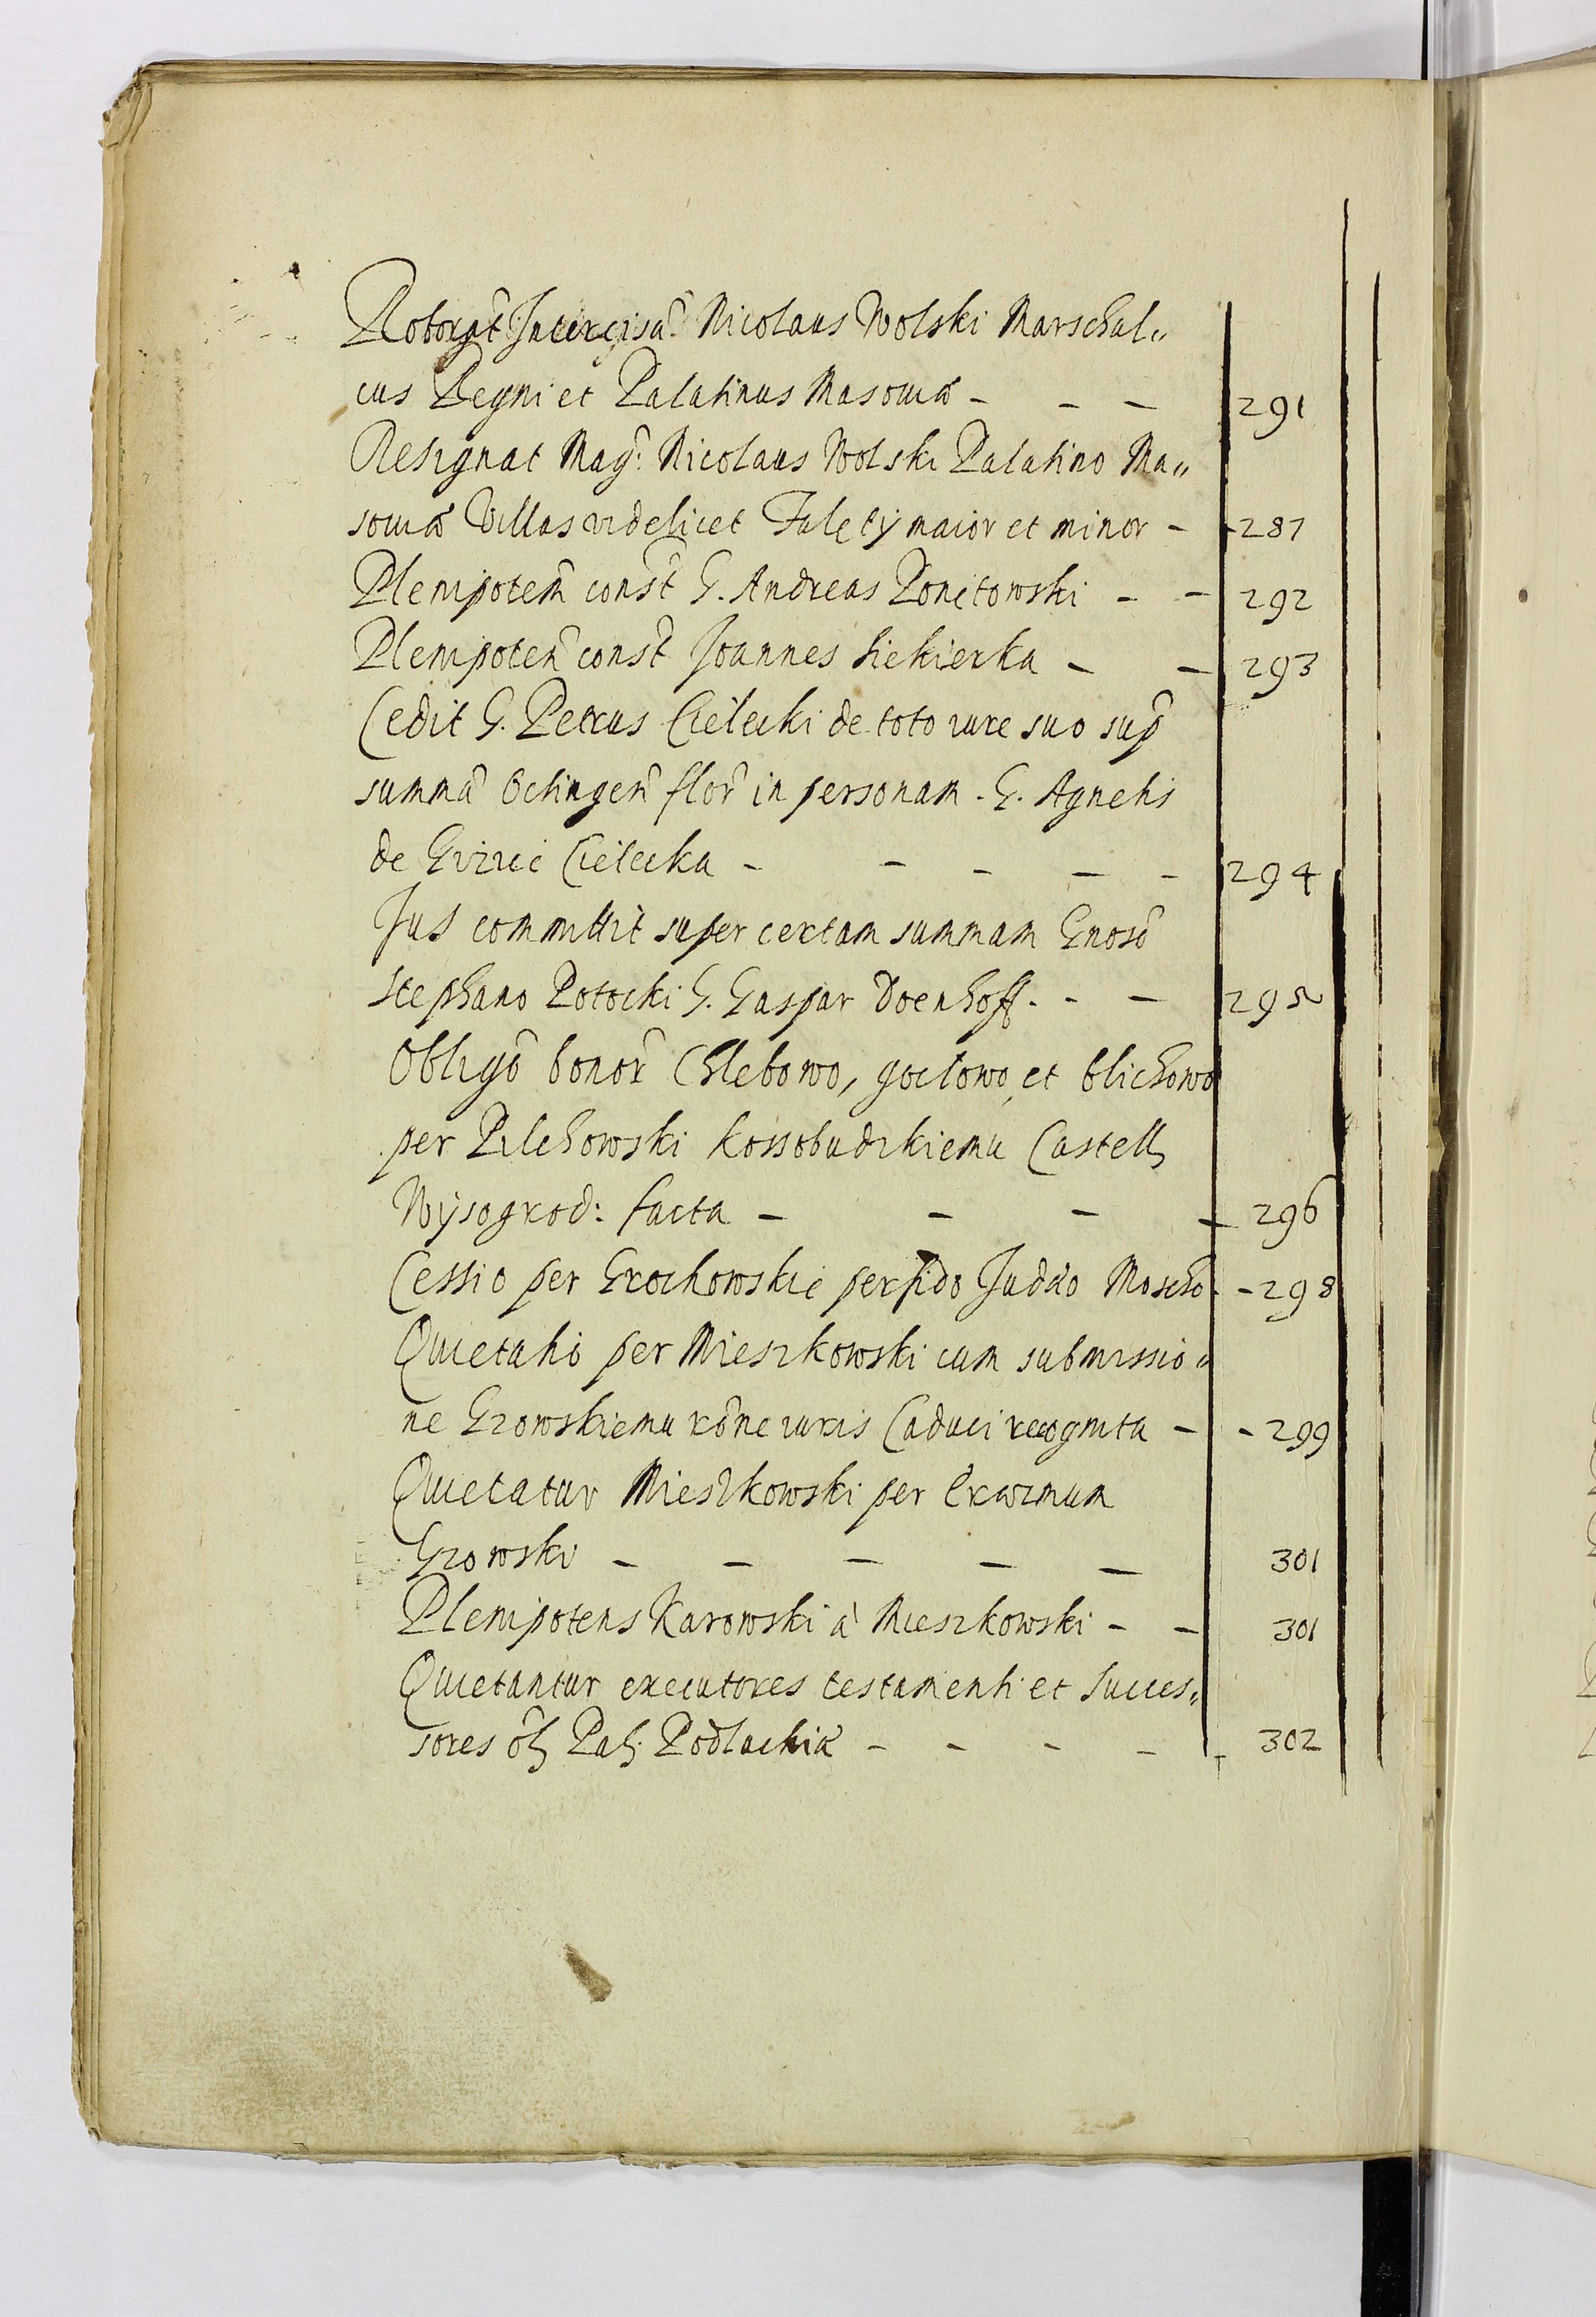 Roborat Intercisã Nicolaus Wolski Marschal„
cus Regni et Palatinus Masouiæ - - - 291
Resignat Mag: Nicolaus Wolski Palatino Ma„
souiæ Villas videlicet Falęty maior et minor - - 287
Plenipoteñ const̃ G. Andreas Ponętowski - - 292
Plenipoteñ const̃ Joannes Siekierka - - 293
Cedit G. Petrus Cielecki de toto iure suo sup̃
summã Octingeñ flor̃ in personam . G. Agnetis
de Cielecka - - - - - 294
Jus committit super certam summam Gnosõ
Stephano Potocki G. Gaspar Doenhoff - - - 295
Obligõ bonor̃ Chlebowo, goclowo, et blichowo
per Pilchowski Kossobudzkiemu Castell
Wysogrod: facta - - - - 296
Cessio per Grochowskie perfido Judæo Moscho - - 298
Quietatio per Mieszkowski cum submissio„
ne Gzowskiemu rõne iuris Caduci recognita - - 299
Quietatur Mieszkowski per Erazmum
Gzowski - - - - - 301
Plenipotens Karowski à Mieszkowski - - 301
Quietantur executores testamenti et Succes„
sores ol Pal. Podlachiæ - - - - - 302